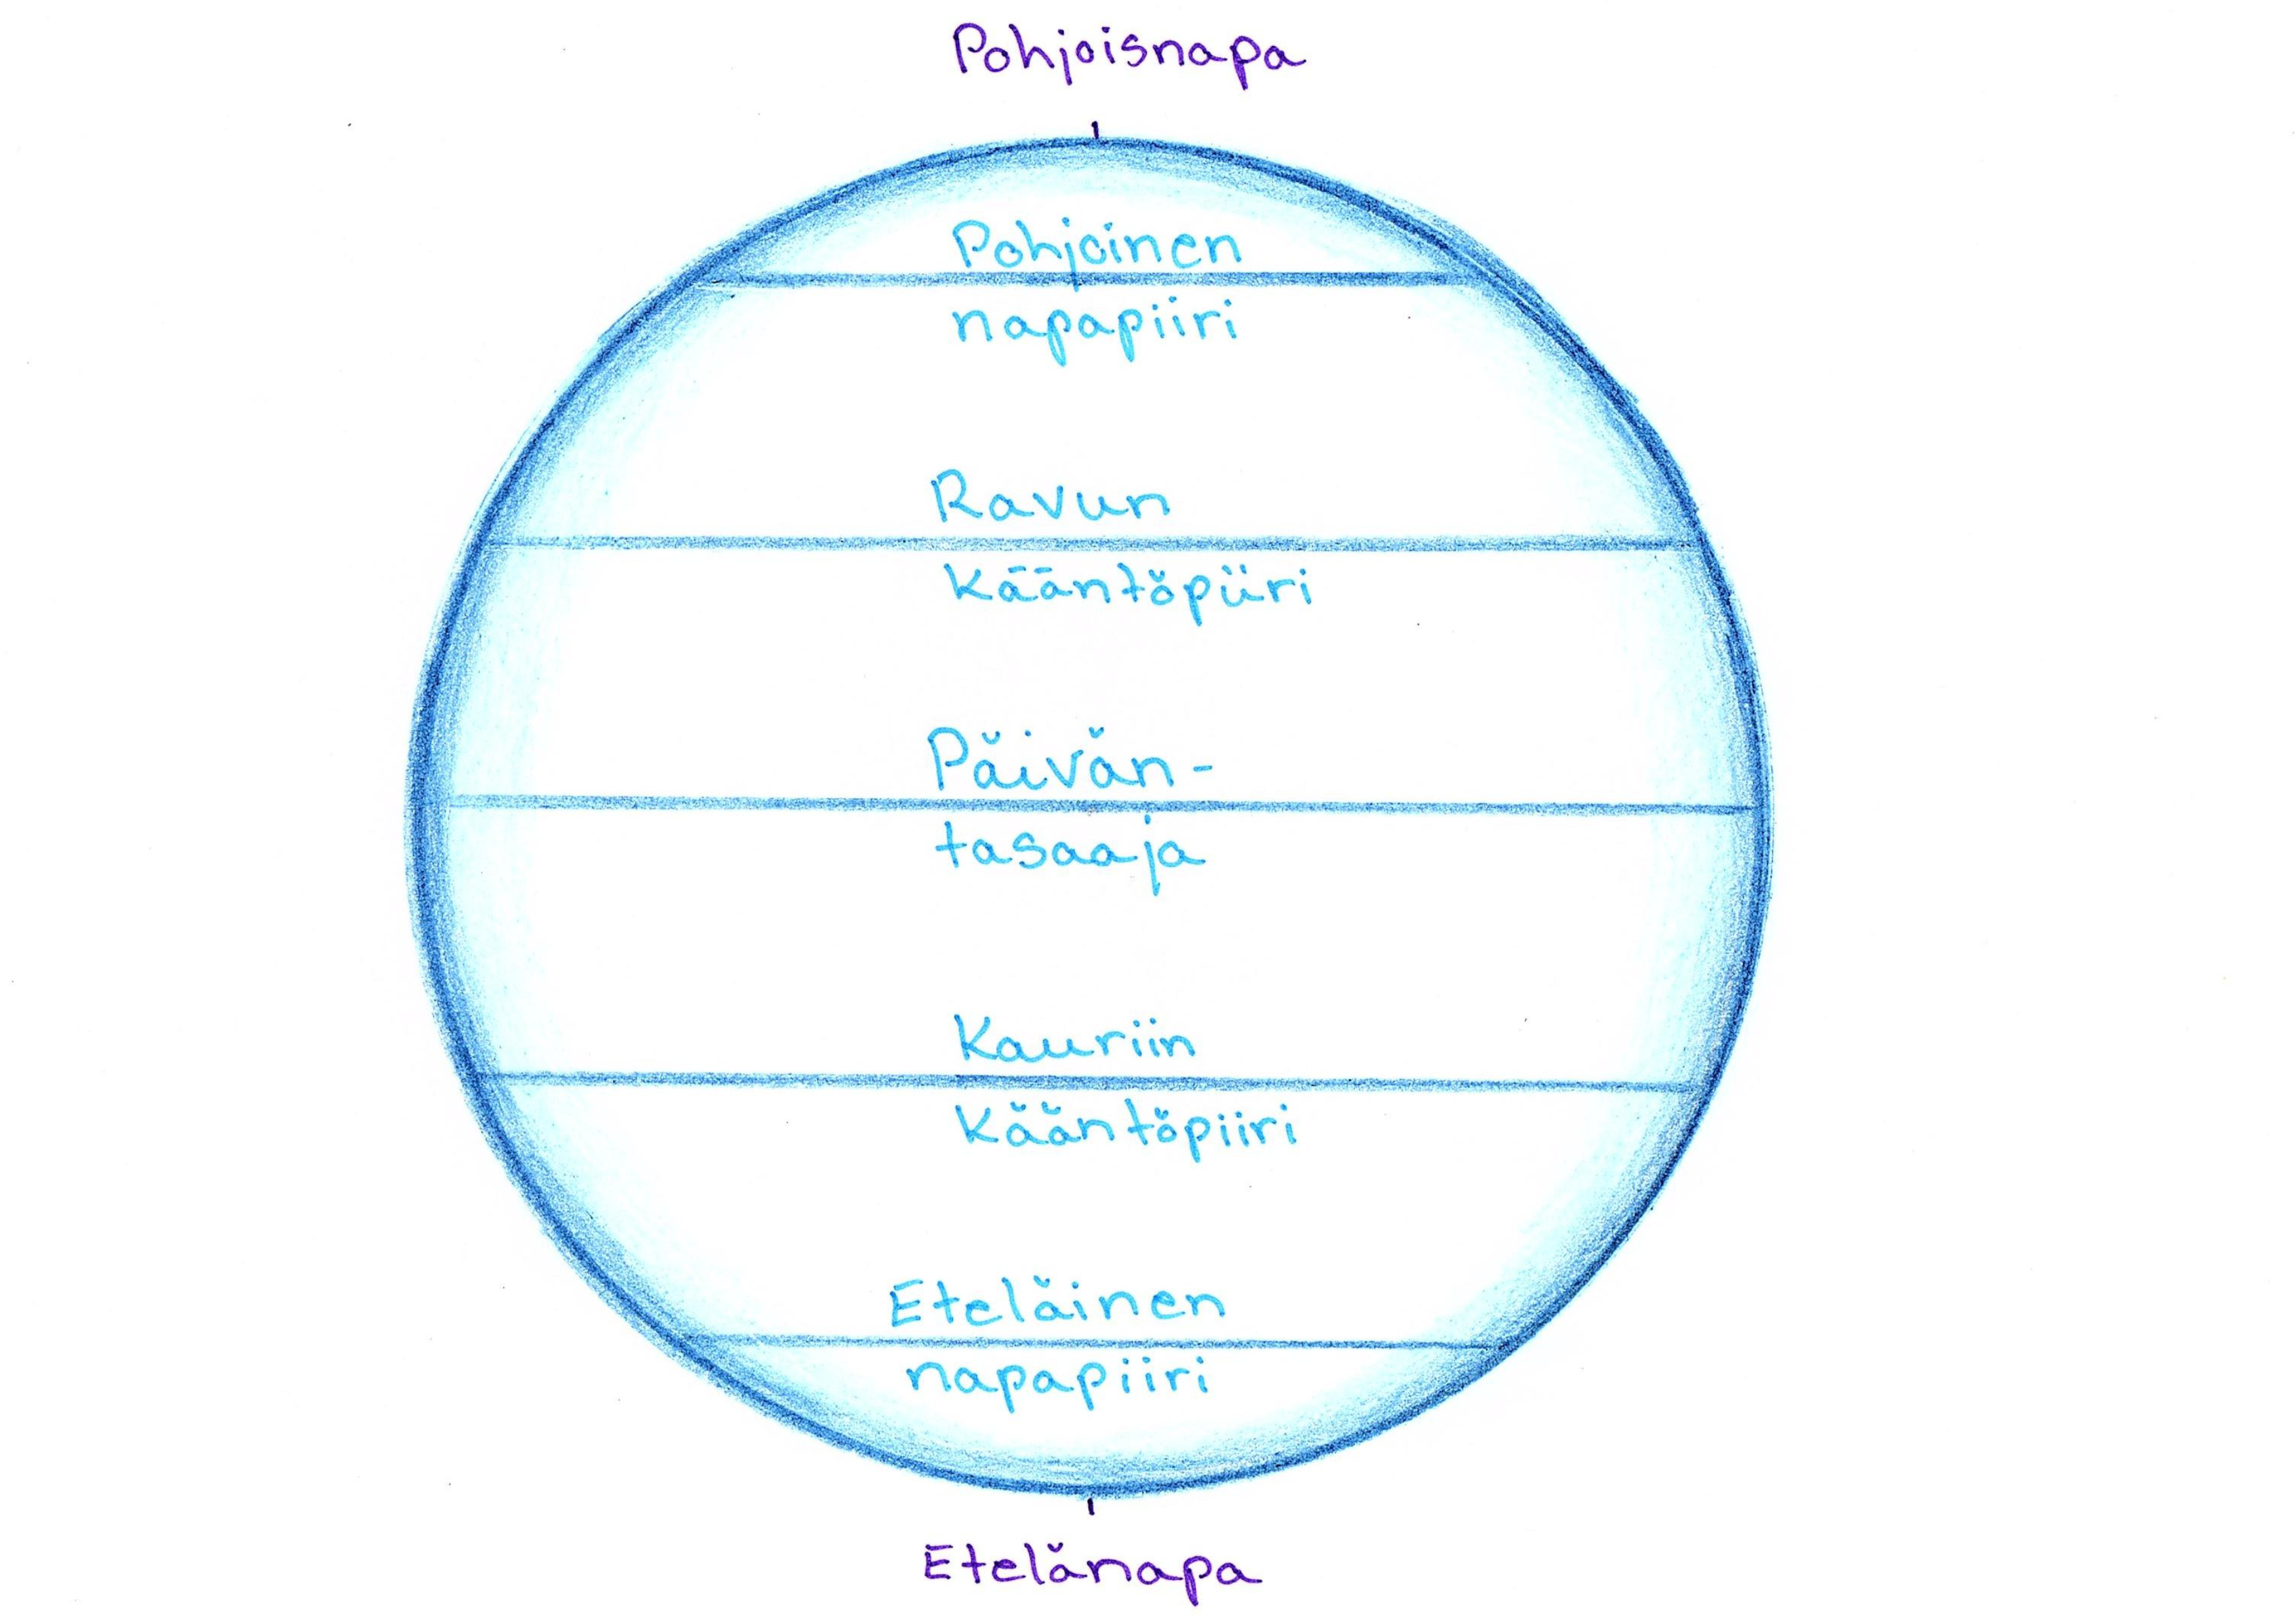 Pohjoisnapa
Pohjoinen
napapiiri
Ravun
kääntöpiiri
Päivän-
tasaaja
Kauriin
kääntöpiiri
Eteläinen
napapiiri
Etelänapa